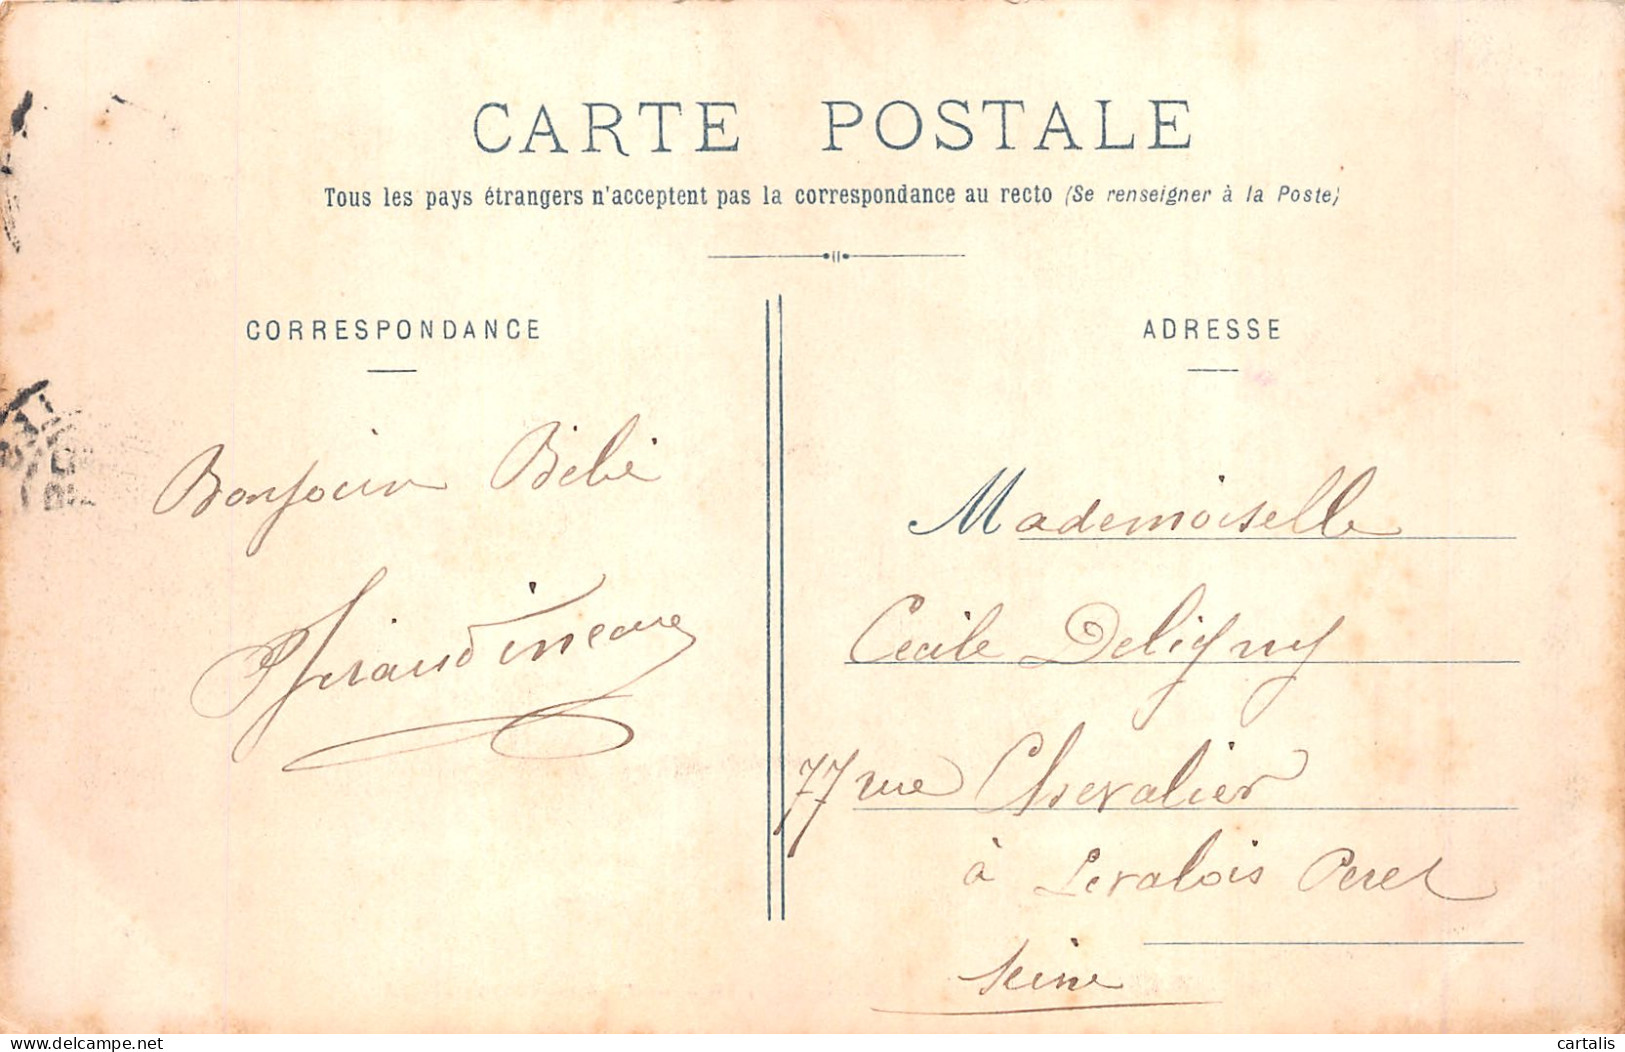 CARTE POSTALE
Tous les pays étrangers n'acceptent pas la correspondance au recto (Se renseigner à la Poste)
CORRESPONDANCE
Bonjour Bébé
ADRESSE
Mademoiselle
Cecile Deligny
77 rue Chevalier
à Levalois Peret
Seine
delcampe.net
cartalis